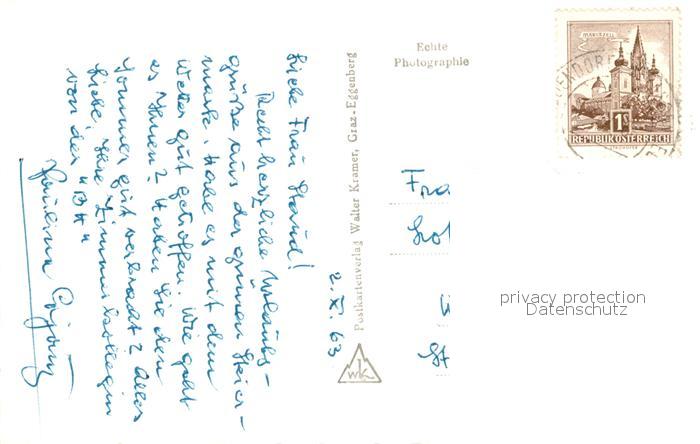 Liebe Frau Staud!
Recht herzliche Urlaubs-
grüße aus der grünen Steier-
mark. Habe es mit dem
Wetter gut getroffen. Wie geht
es Ihnen? Haben Sie den
Sommer gut verbracht? Alles
Liebe, Ihre Zimmerkollegin
von der "BH"
Paulina
2. X. 63
Postkartenverlag Walter Kramer, Graz-Eggenberg
WK
Echte
Photographie
MARIAZELL
1S
REPUBLIK ÖSTERREICH
Fra
St
privacy protection
Datenschutz